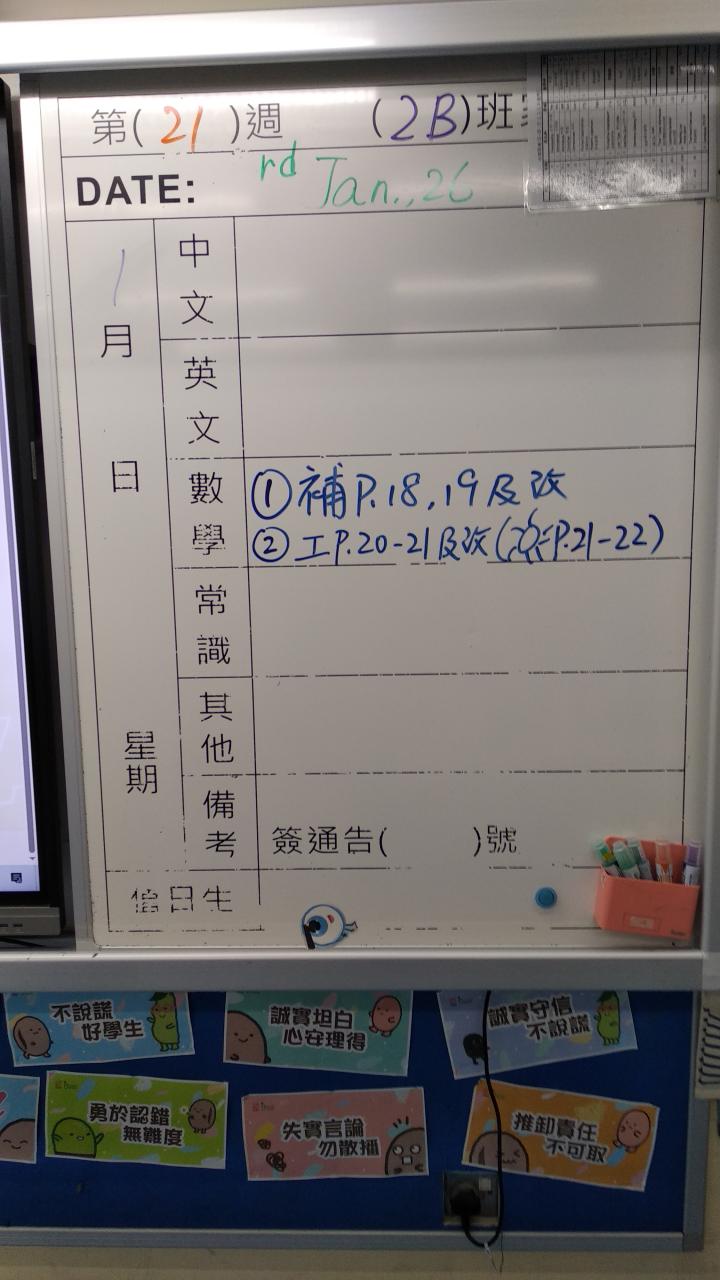 第(21)週 (2B)班
DATE: rd Jan.,26
1月 日 星期
中文
英文
數學
①補P.18,19及改
②工P.20-21及改( P.21-22)
常識
其他
備考
簽通告( )號
值日生
不說謊
好學生
誠實坦白
心安理得
誠實守信
不說謊
勇於認錯
無難度
失實言論
勿散播
推卸責任
不可取